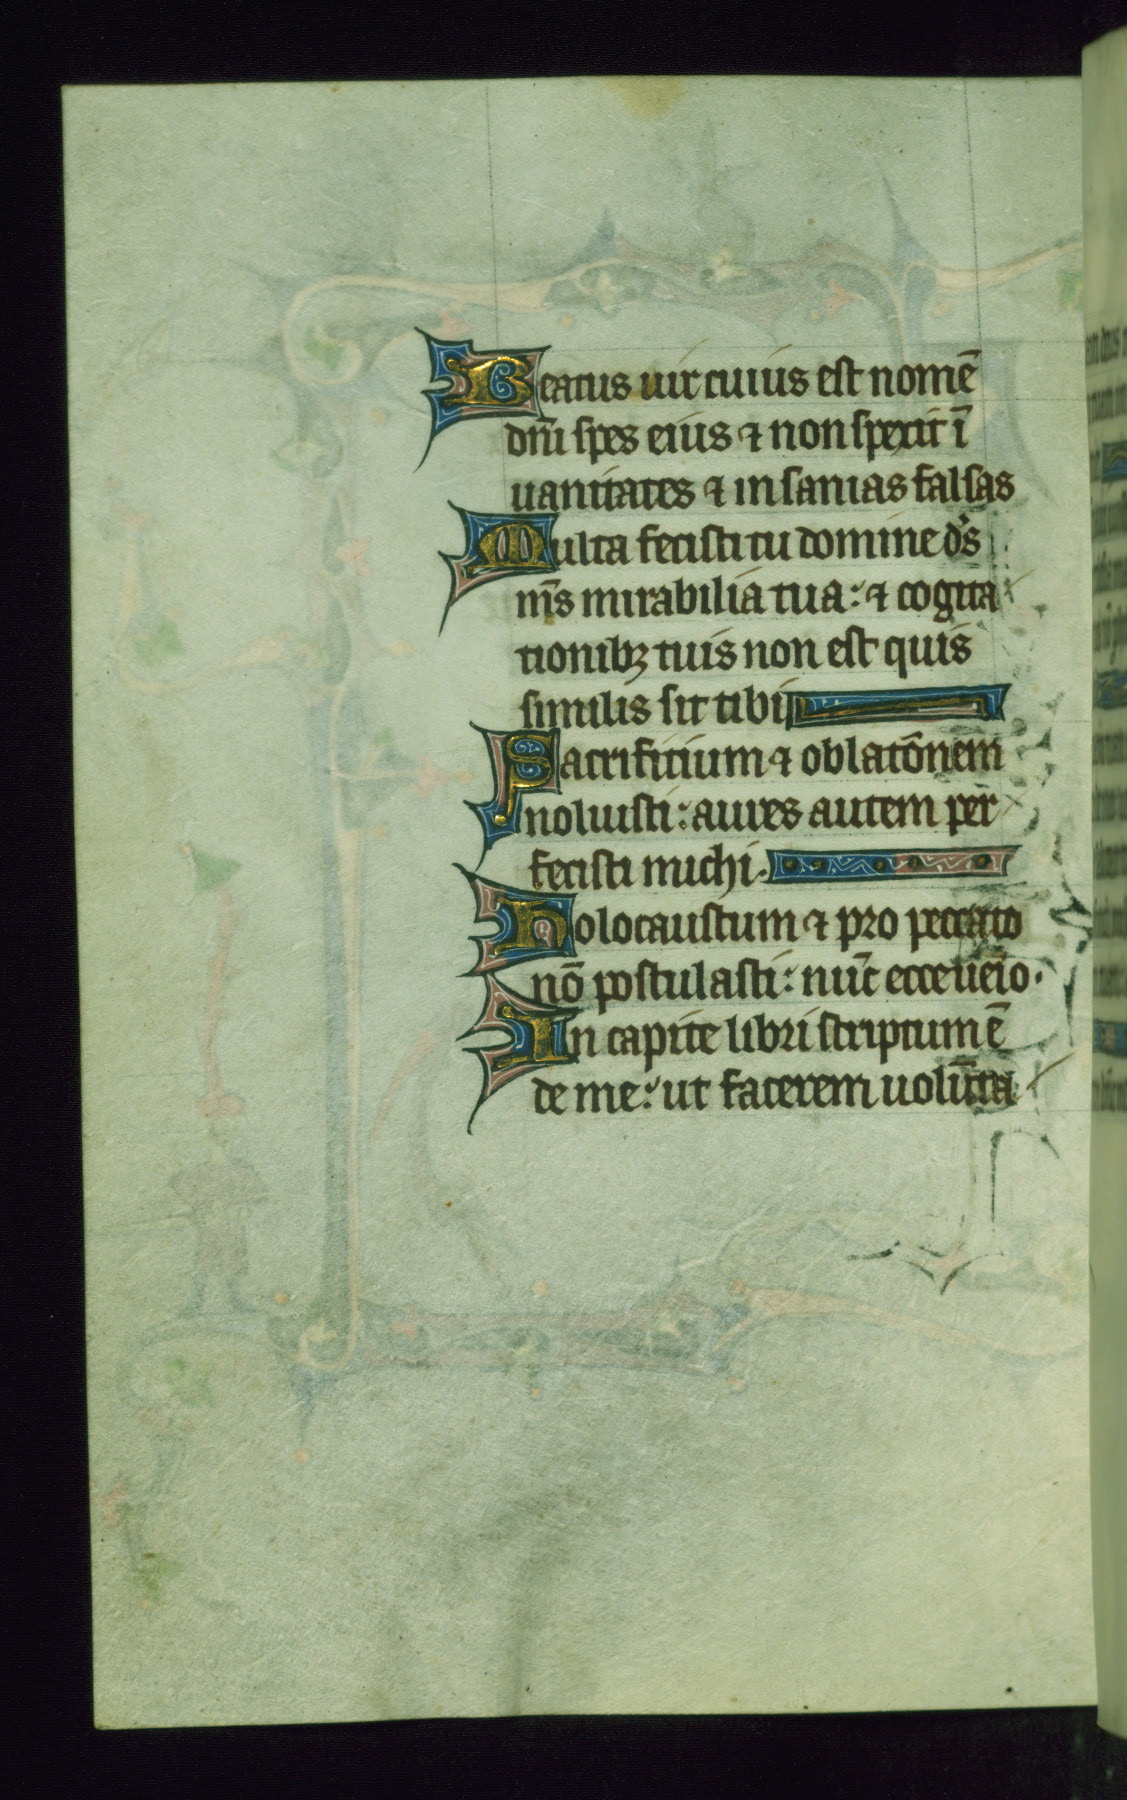 Beatus uir cuius est nomē
dn̄i spes eius ⁊ non spexit ī
uanitates ⁊ insanias falsas
Multa fecisti tu domine ds̄
nr̄s mirabilia tua: ⁊ cogita
tionibꝫ tuis non est quis
similis sit tibi
Sacrificium ⁊ oblatōnem
noluisti: aures autem per
fecisti michi.
Holocaustum ⁊ pro peccato
nō postulasti: nūc ecce ueīo.
In capite libri scriptum ē
de me: ut facerem uolūta